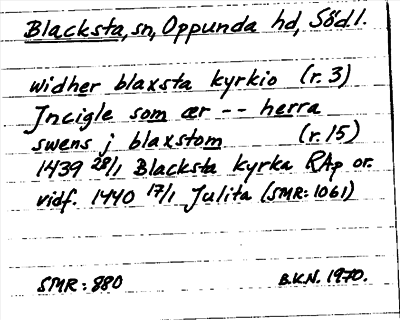 Blacksta, sn, Oppunda hd, Södl.
widher blaxsta kyrkio (r. 3)
Jncigle som ær -- herra
swens j blaxstom (r. 15)
1439 28/1 Blacksta kyrka RAp or.
vidf. 1440 17/1 Julita (SMR: 1061)
SMR: 880 B.K.N. 1970.